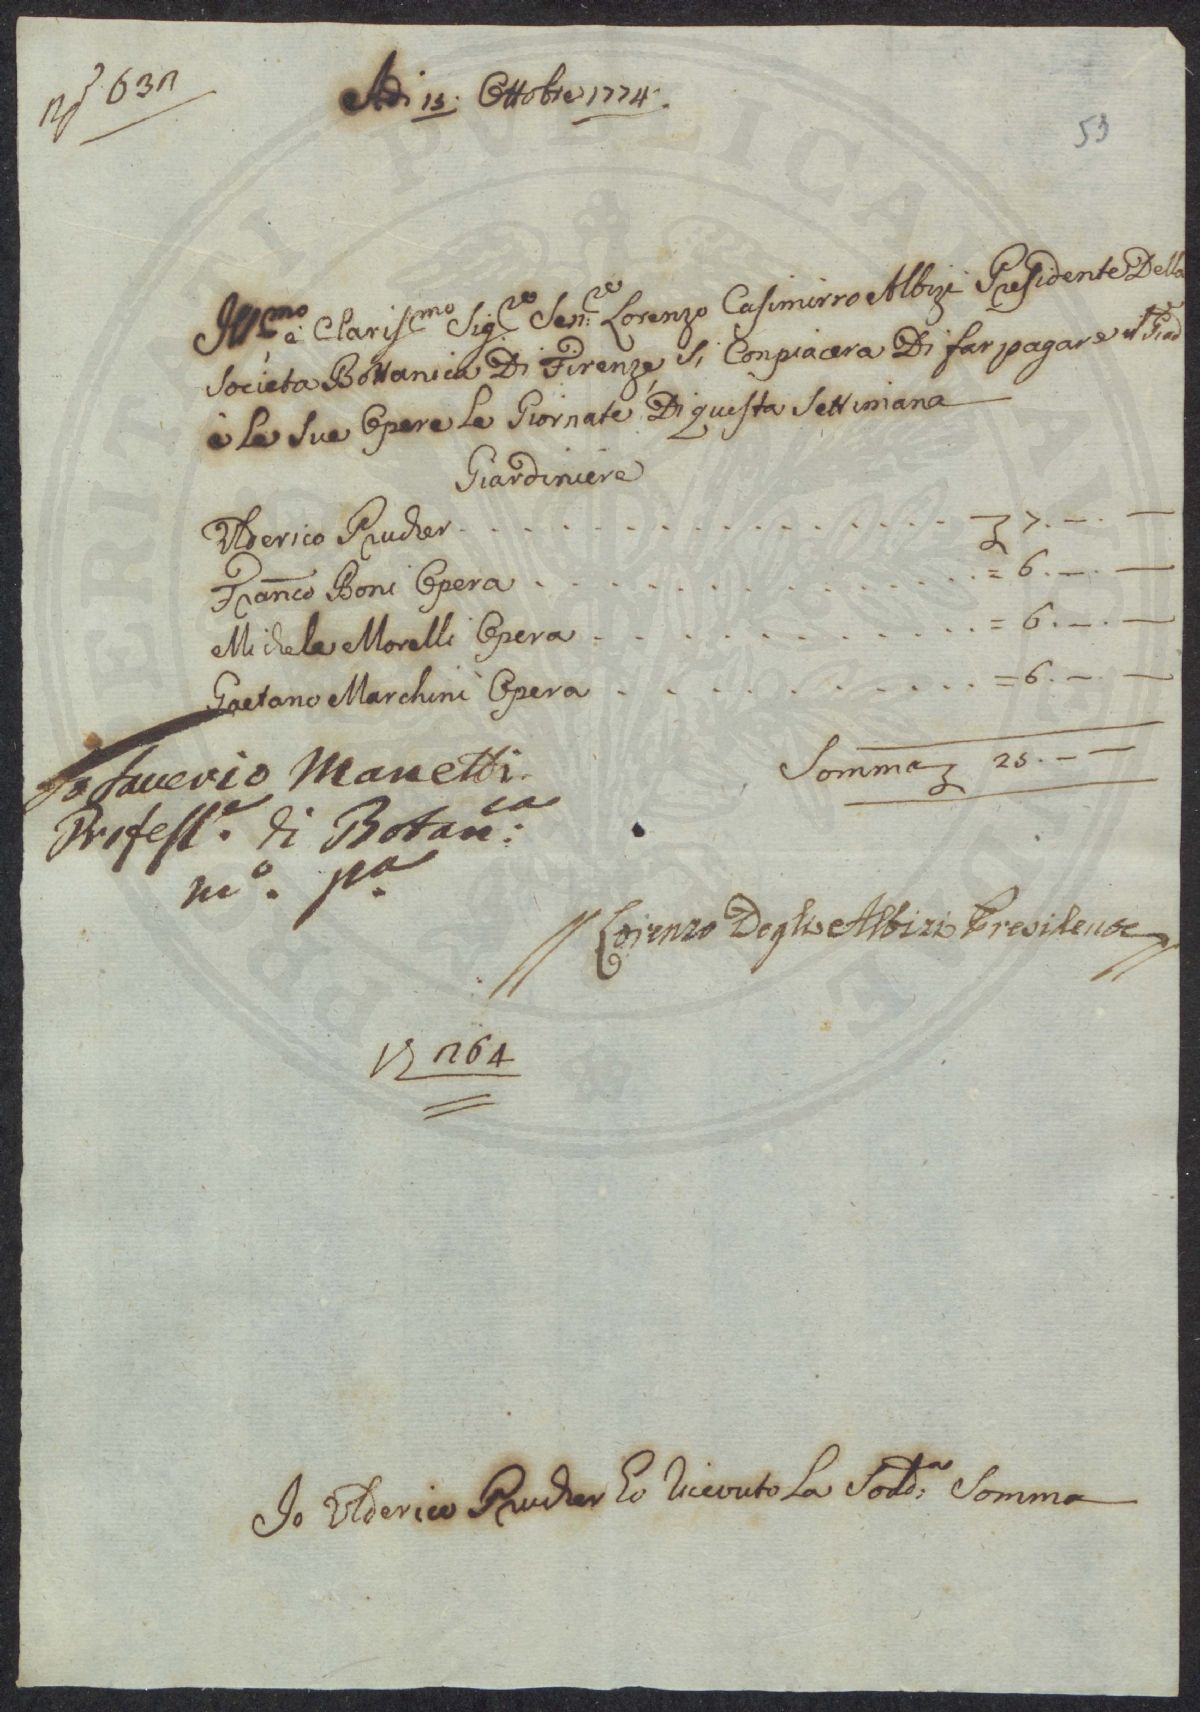 Adi 15. Ottobre 1774.
53
Ill.mo e Claris.mo Sig.re Sen.re Lorenzo Casimirro Albizi Presidente Della
Societa Bottanica Di Firenze, Si Conpiacera Di far pagare il Giard
è le Sue Opere Le Giornate Di questa Settimana
Giardiniere
Ulderico Prucher . . . . . . . . £ 7. — . —
Franco Boni Opera . . . . . . . . = 6. — . —
Michele Morelli Opera . . . . . . . . = 6. — . —
Gaetano Marchini Opera . . . . . . . . = 6. — . —
Somma £ 25. — —
Io Saverio Manetti
Profess.e di Botan.ca
m.o p.a
Lorenzo Degli Albizi Presidente
264
Io Ulderico Prucher Eo Ricevuto La Sodd.a Somma
PERITI PVBLICAE